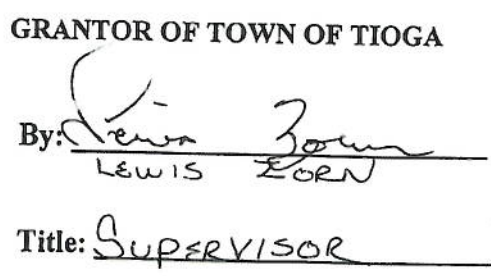 GRANTOR OF TOWN OF TIOGA
By: Lewis Zorn
LEWIS ZORN
Title: SUPERVISOR